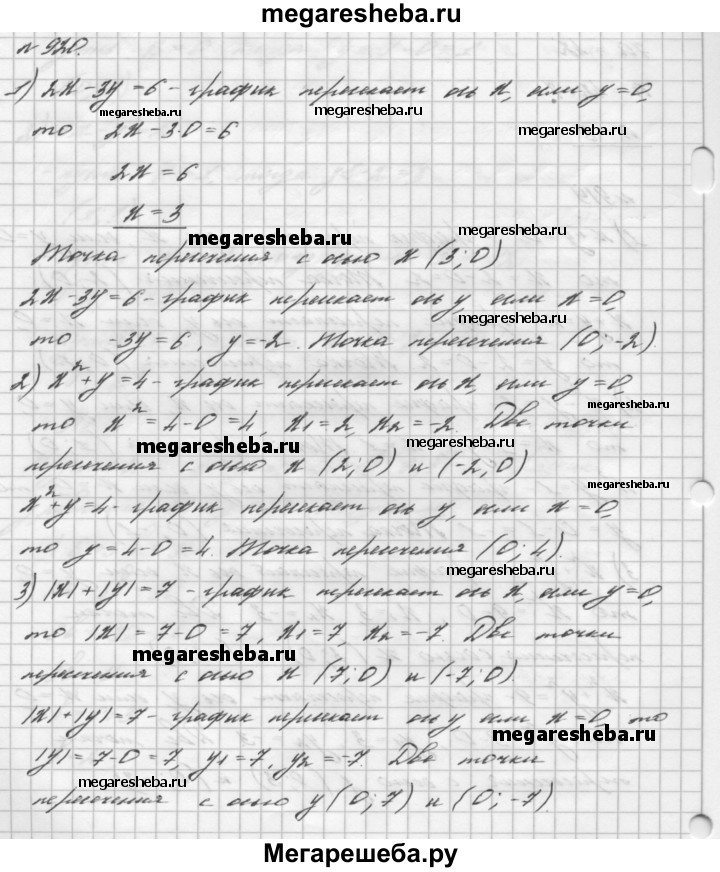 megaresheba.ru
№ 920.
1) 2x - 3y = 6 - график пересекает ось x, если y = 0,
megaresheba.ru megaresheba.ru megaresheba.ru
то 2x - 3·0 = 6
megaresheba.ru
2x = 6
x = 3
megaresheba.ru
Точка пересечения с осью x (3; 0)
megaresheba.ru
2x - 3y = 6 - график пересекает ось y, если x = 0,
megaresheba.ru
то -3y = 6, y = -2. Точка пересечения (0; -2).
2) x² + y = 4 - график пересекает ось x, если y = 0,
megaresheba.ru
то x² = 4 - 0 = 4, x1 = 2, x2 = -2. Две точки
megaresheba.ru megaresheba.ru
пересечения с осью x (2; 0) и (-2; 0)
megaresheba.ru
x² + y = 4 - график пересекает ось y, если x = 0,
то y = 4 - 0 = 4. Точка пересечения (0; 4).
megaresheba.ru
3) |x| + |y| = 7 - график пересекает ось x, если y = 0,
то |x| = 7 - 0 = 7, x1 = 7, x2 = -7. Две точки
megaresheba.ru
пересечения с осью x (7; 0) и (-7; 0)
|x| + |y| = 7 - график пересекает ось y, если x = 0, то
megaresheba.ru
|y| = 7 - 0 = 7, y1 = 7, y2 = -7 Две точки
megaresheba.ru
пересечения с осью y (0; 7) и (0; -7).
megaresheba.ru
Мегарешеба.ру